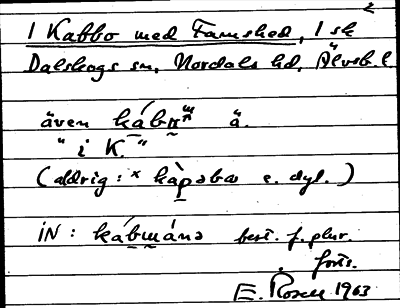 2
1 Kabbo med Famshed, 1 sk
Dalskogs sn, Nordals hd, Älvsb. l
även kábu ä.
" i K. "
(aldrig: × kàpəbω e. dyl.)
IN: kábɯánə best. f. plur.
forts.
E. Rosell 1963